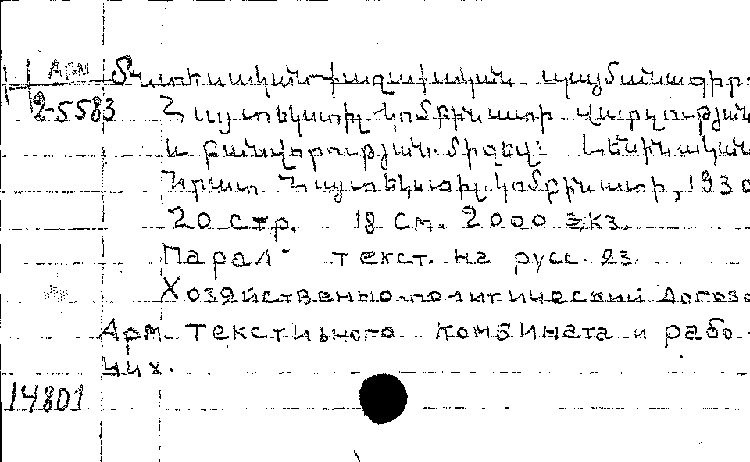 Арм
Տնտեսական-քաղաքական պայմանագիր
2-5583 Հայտեկստիլ կոմբինատի վարչության
և բանվորության միջև: Լենինական
Հրատ. Հայտեկստիլ կոմբինատի, 1930
20 стр. 18 см. 2000 экз.
Парал. текст. на русс. яз.
Хозяйственно-политический догово
Арм. текстильного комбината и рабо-
чих.
14801